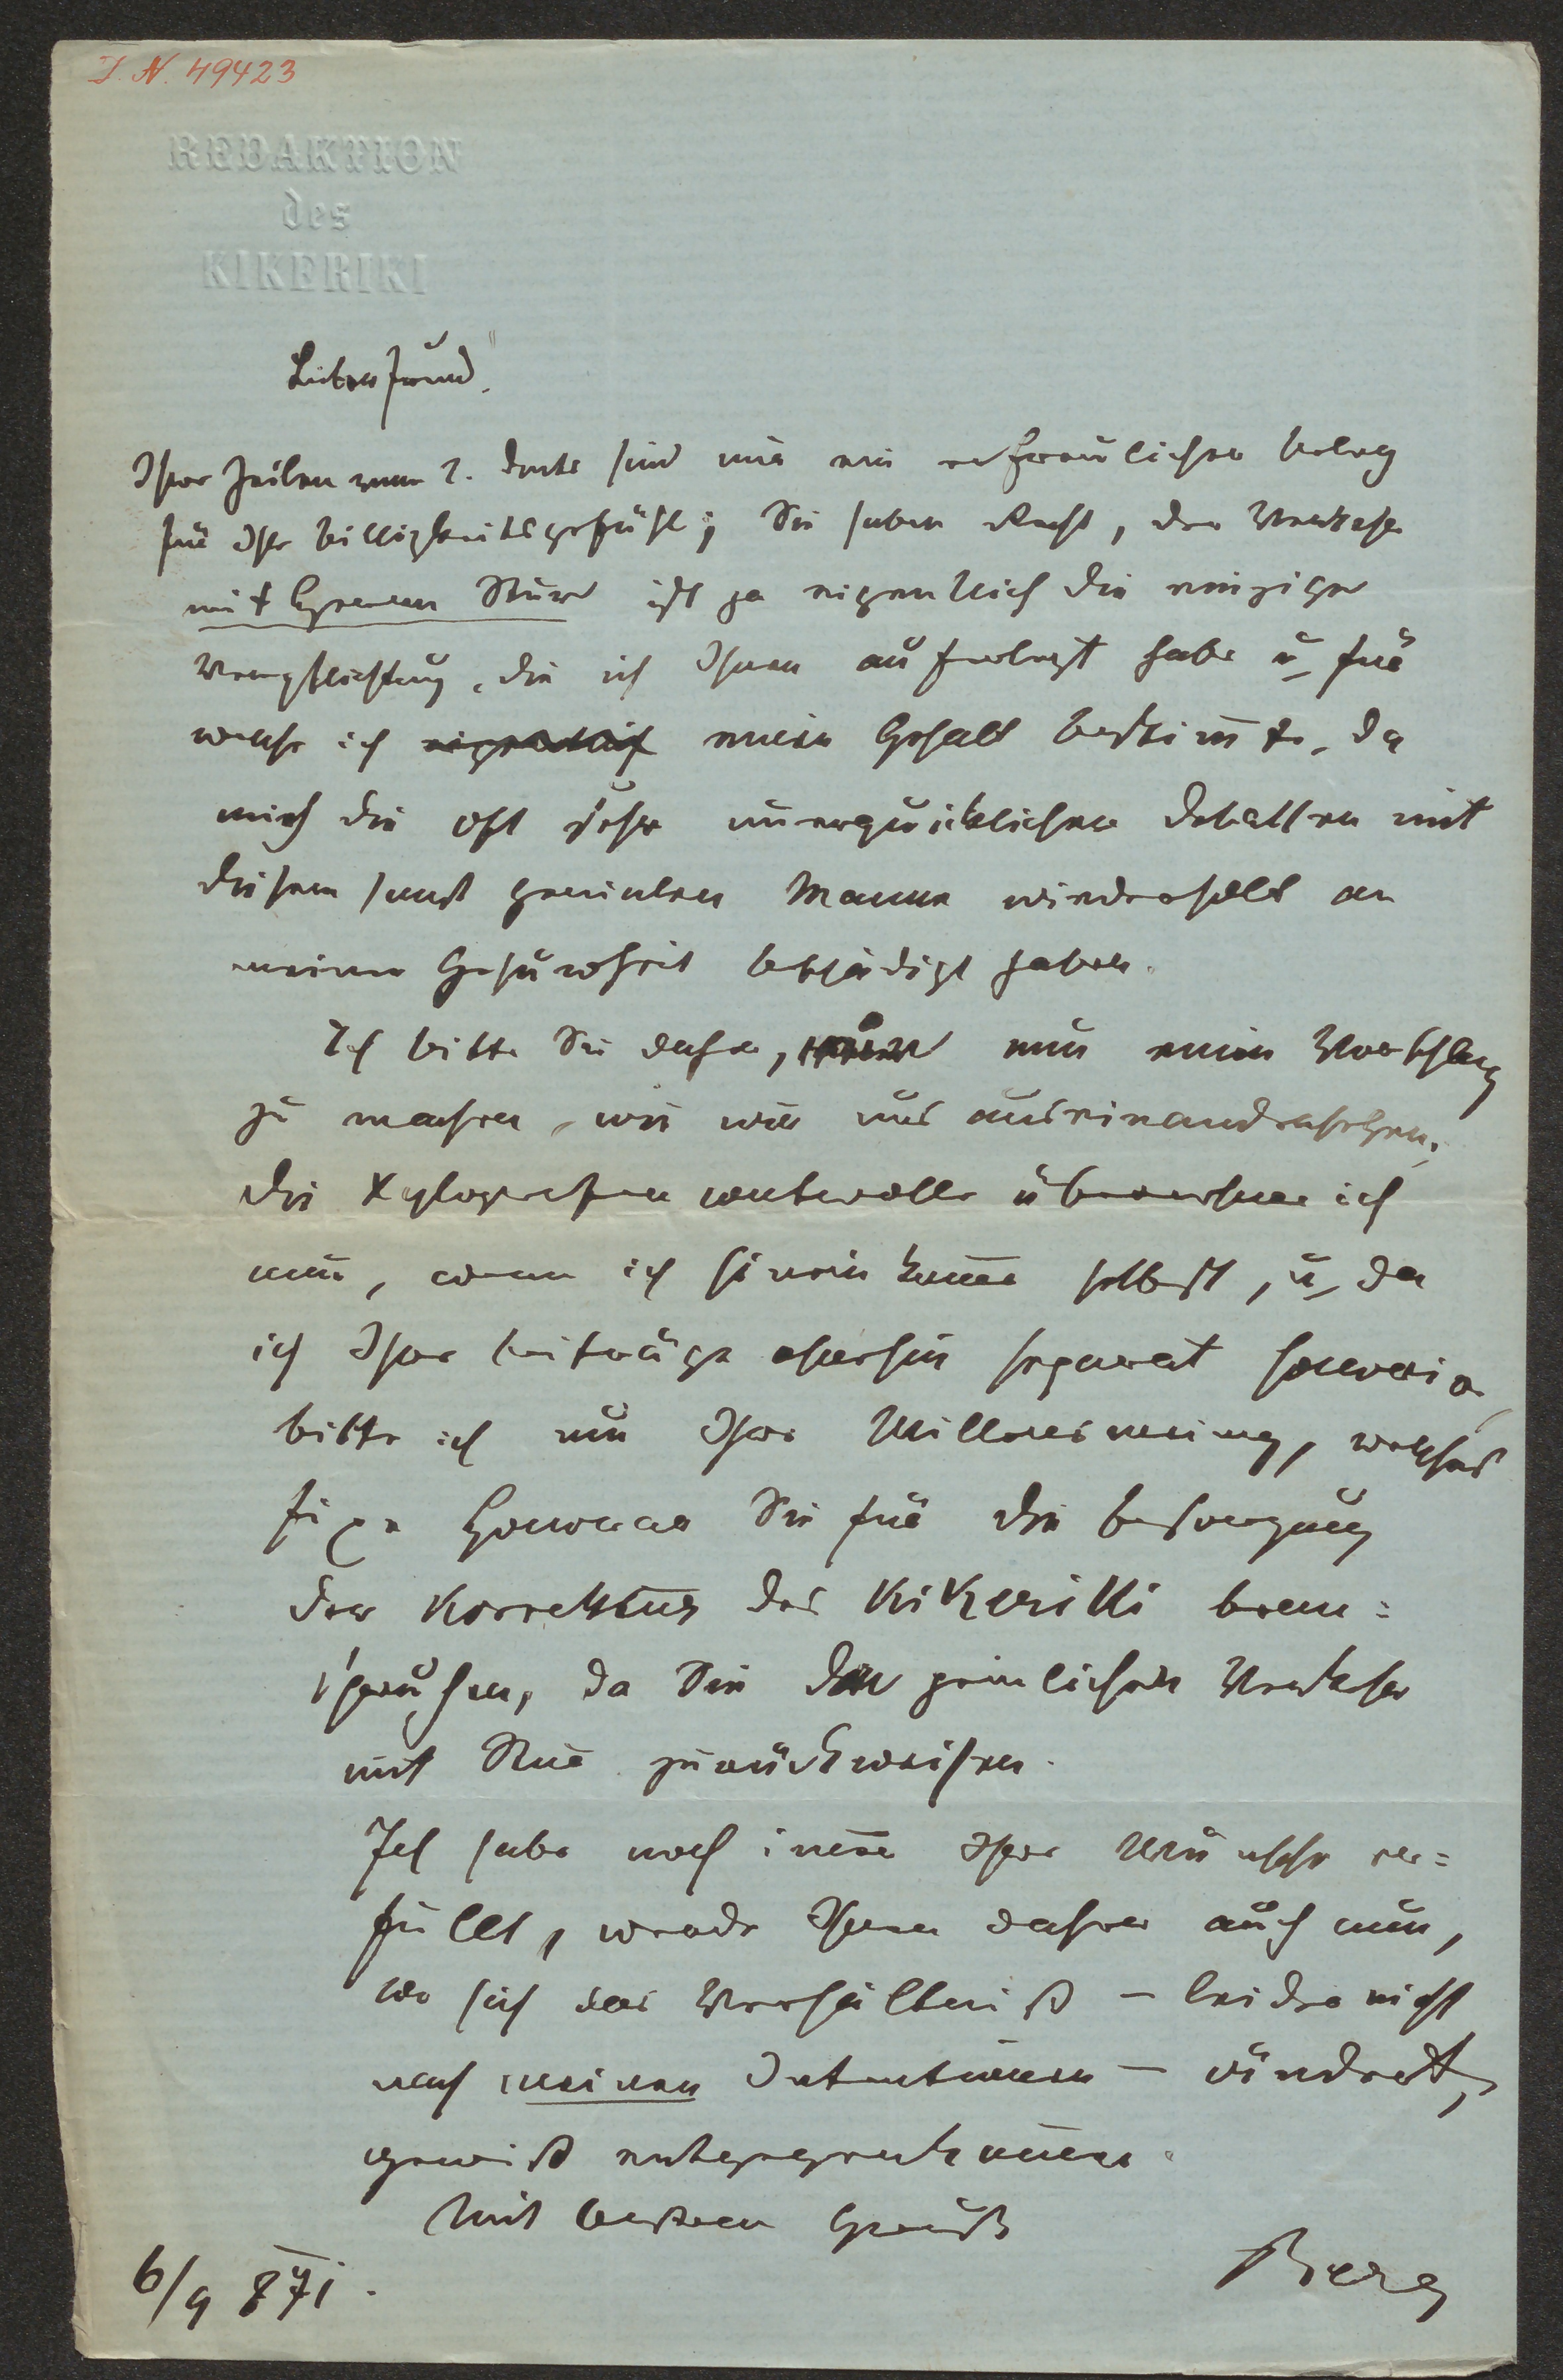 I. N. 49423
REDAKTION
des
KIKERIKI
Lieber Freund!
Ihre Zeilen vom 2. dmts sind mir ein erfreulicher Beleg
für Ihr Billigkeitsgefühl; Sie haben Recht, der Verkehr
mit Herrn ist ja eigentlich die einzige
Verpflichtung, die ich Ihnen auferlegt habe u für
welche ich eigentlich einen Gehalt bestim̄te, da
mich die oft sehr unerquicklichen Debatten mit
diesem sonst Manne wiederholt an
meiner Gesundheit beschädigt haben.
Ich bitte Sie daher, mir nun einen Vorschlag
zu machen, wie wir uns auseinandersetzen.
Die Xylografen übernehme ich
nun, wenn ich hinein kom̄e selbst, u da
ich Ihre Beiträge ohnehin separat honorire
bitte ich nun Ihre Willensmeinung, welches
fixe Honorar Sie für die Besorgung
der Korrektur des Kikeriki bean=
spruchen, da Sie den peinlichen Verkehr
mit zurückweisen.
Ich habe noch im̄er Ihre Wünsche er=
füllt, werde Ihnen daher auch nun,
wo sich das Verhältniß – leider nicht
nach meinen Intentionen – ändert,
gewiß entgegenkom̄en.
Mit bestem Gruß
Berg
6/9 871.